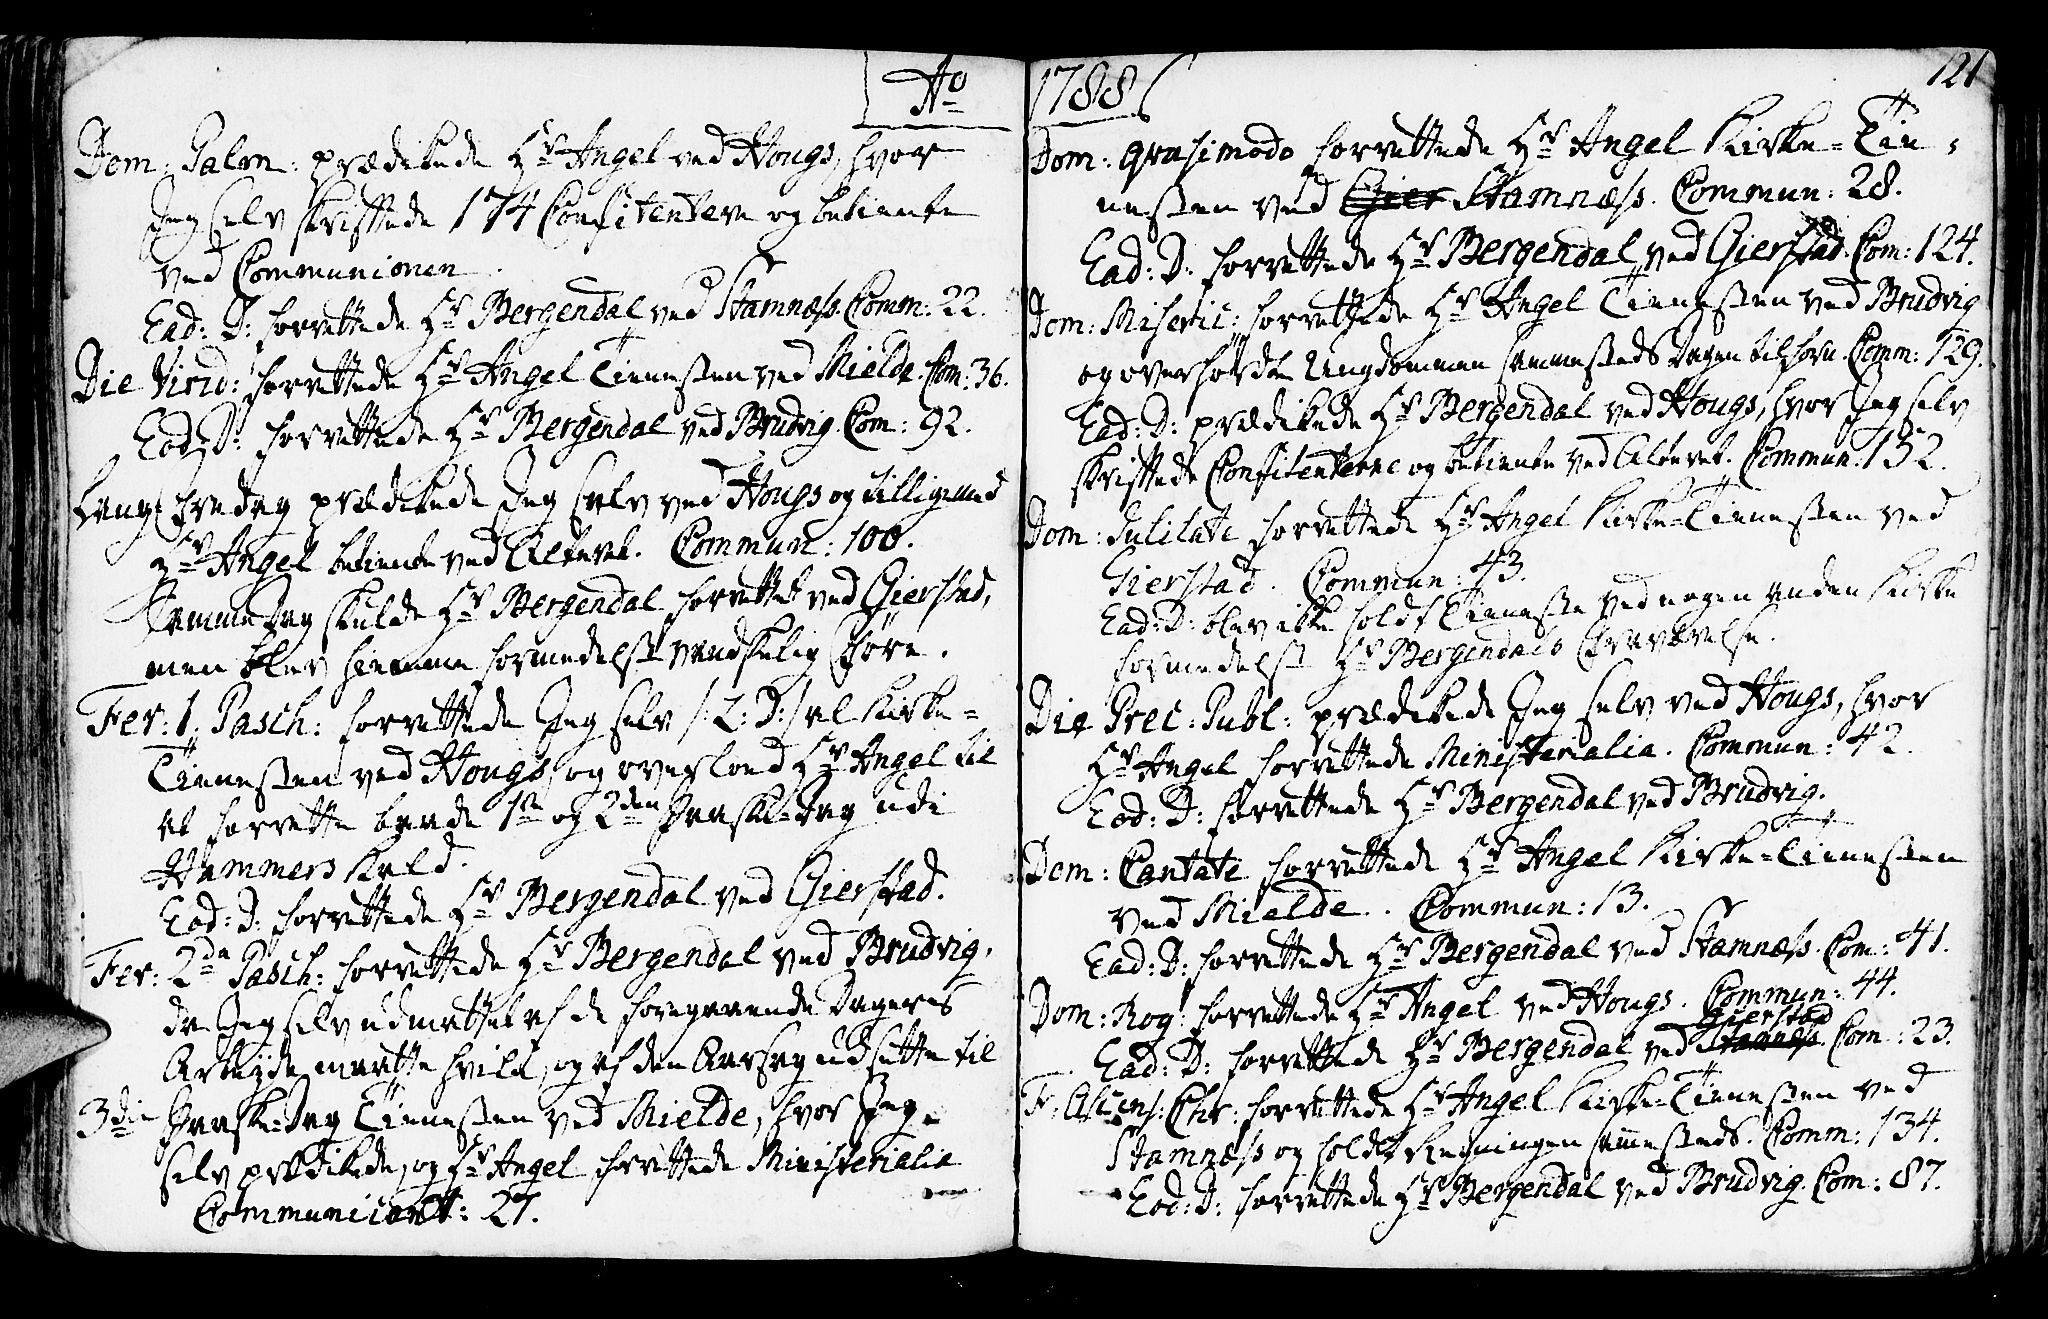 Ao 1788
121
Dom: Palm: prædikede Hr Angel ved Hougs, hvor
Jeg selv skriftede 174 Confitentere og betiente
ved Communionen.
Ead: D: forrettede Hr Bergendal ved Stamnæss. Comm: 22.
Die Virid: forrettede Hr Angel Tienesten ved Mielde. Com: 36.
Eod: D: forrettede Hr Bergendal ved Brudvig. Com: 92.
Lang Fredag prædikede Jeg selv ved Hougs og tilligemed
Hr Angel betiente ved Alteret. Commun: 100.
Samme Dag skulde Hr Bergendal forrettet ved Gierstad,
men blev hiemme formedelst vandskelig Føre.
Fer: 1. Pasch: forrettede Jeg selv /: L: D:/ al Kirke=
Tienesten ved Hougs, og overlod Hr Angel til
at forrette baade 1ste og 2den Paaske-Dag udi
Hammers Kald.
Ead: D: forrettede Hr Bergendal ved Gierstad.
Fer: 2da Pasch: forrettede Hr Bergendal ved Brudvig,
da Jeg selv udmattet af de foregaaende Dages
Arbeyde maatte hvile, og af den Aarsag udsætte til
3die Paaske-Dag Tienesten ved Mielde, hvor Jeg
selv prædikede, og Hr Angel forrettede Ministerialia
Communicant: 27.
Dom: Qvasimodo forrettede Hr Angel Kirke=Tie=
nesten ved Gier Stamnæss. Commun: 28.
Ead: D: forrettede Hr Bergendal ved Gierstad. Com: 124.
Dom: Miseric: forrettede Hr Angel Tienesten ved Brudvig
og overhørde Ungdommen sammesteds Dagen tilforn. Comm: 129.
Ead: D: prædikede Hr Bergendal ved Hougs, hvor Jeg selv
skriftede Confitenterne og betiente ved Alteret. Commun: 152.
Dom: Jubilate forrettede Hr Angel Kirke=Tienesten ved
Gierstad. Commun: 43.
Ead: D: blev ikke holdt Tieneste ved nogen anden Kirke
formedelst Hr Bergendals Fraværelse.
Die Prec: Publ: prædikede Jeg selv ved Hougs, hvor
Hr Angel forrettede Ministerialia. Commun: 42.
Eod: D: forrettede Hr Bergendal ved Brudvig.
Dom: Cantate forrettede Hr Angel Kirke=Tienesten
ved Mielde. Commun: 13.
Ead: D: forrettede Hr Bergendal ved Stamnæss. Com: 41.
Dom: Rog: forrettede Hr Angel ved Hougs. Commun: 44.
Ead: D: forrettede Hr Bergendal ved Stamnæss Gierstad Com: 23.
F: Ascens: Chr: forrettede Hr Angel Kirke=Tienesten ved
Stamnæss og holdt sammesteds. Comm: 134.
Eod: D: forrettede Hr Bergendal ved Brudvig. Com: 87.